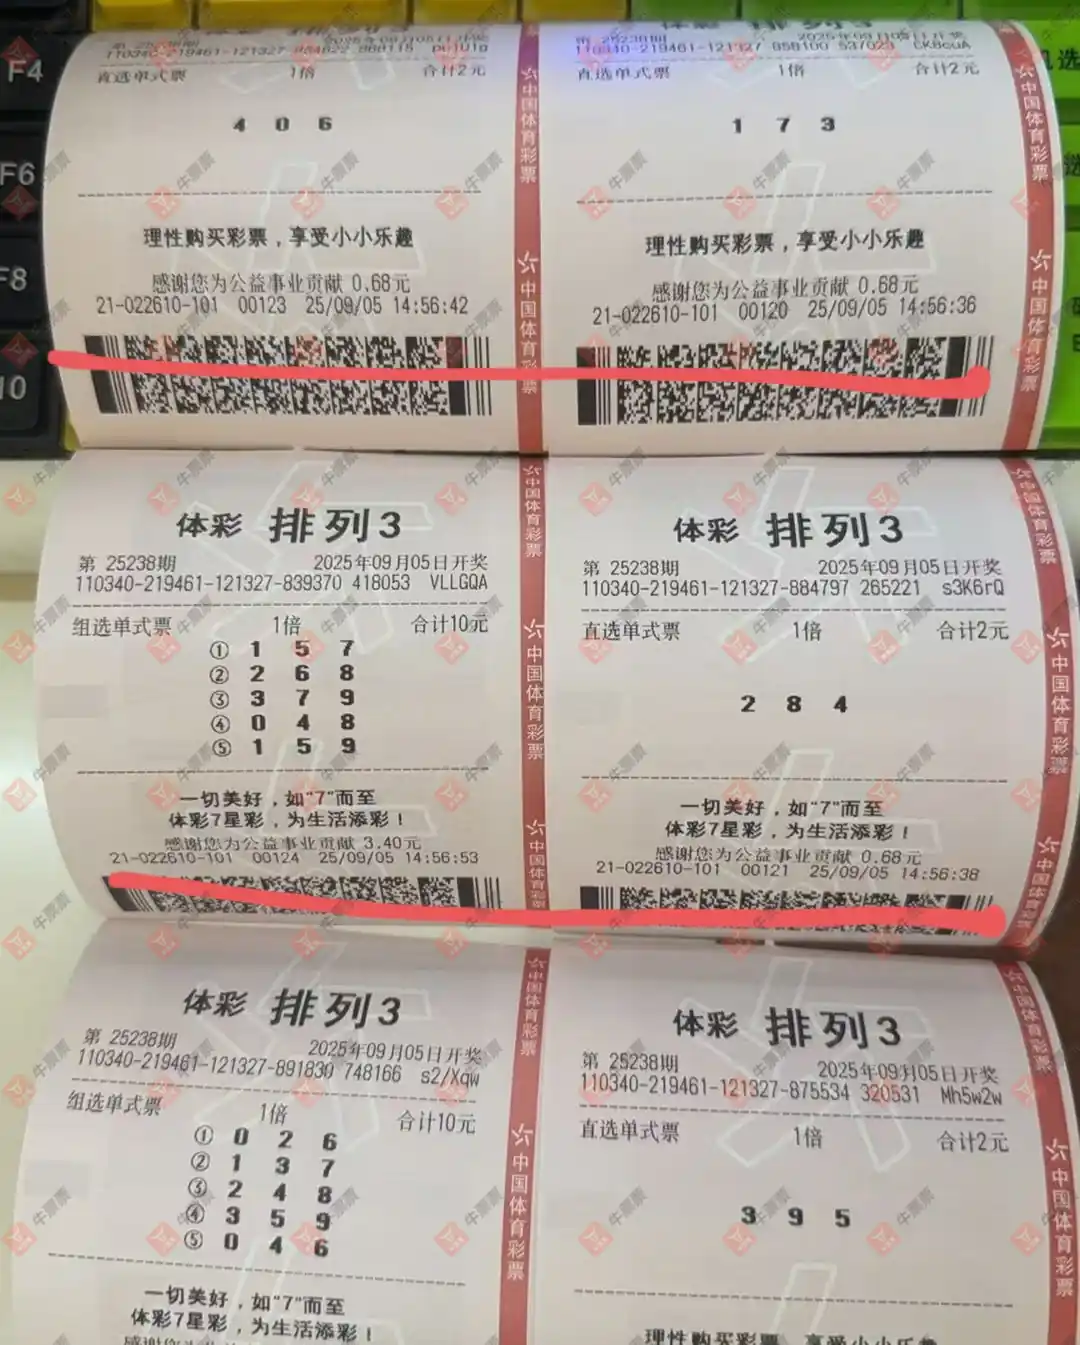 F4
F6
F8
10
直选单式票 1倍 合计2元
4 0 6
理性购买彩票，享受小小乐趣
感谢您为公益事业贡献 0.68元
21-022610-101 00123 25/09/05 14:56:42
110340-219461-121327 858100 537023
直选单式票 1倍 合计2元
1 7 3
理性购买彩票，享受小小乐趣
感谢您为公益事业贡献 0.68元
21-022610-101 00120 25/09/05 14:56:36
中国体育彩票
中国体育彩票
中国体育彩票
中国体育彩票
机选
体彩 排列3
第 25238期 2025年09月05日开奖
110340-219461-121327-839370 418053 VLLGQA
组选单式票 1倍 合计10元
① 1 5 7
② 2 6 8
③ 3 7 9
④ 0 4 8
⑤ 1 5 9
一切美好，如"7"而至
体彩7星彩，为生活添彩！
感谢您为公益事业贡献 3.40元
21-022610-101 00124 25/09/05 14:56:53
体彩 排列3
第 25238期 2025年09月05日开奖
110340-219461-121327-884797 265221 s3K6rQ
直选单式票 1倍 合计2元
2 8 4
一切美好，如"7"而至
体彩7星彩，为生活添彩！
感谢您为公益事业贡献 0.68元
21-022610-101 00121 25/09/05 14:56:38
中国体育彩票
中国体育彩票
中国体育彩票
中国体育彩票
中国体育彩票
体彩 排列3
第 25238期 2025年09月05日开奖
110340-219461-121327-891830 748166 s2/Xqw
组选单式票 1倍 合计10元
① 0 2 6
② 1 3 7
③ 2 4 8
④ 3 5 9
⑤ 0 4 6
一切美好，如"7"而至
体彩7星彩，为生活添彩！
体彩 排列3
第 25238期 2025年09月05日开奖
110340-219461-121327-875534 320531 Mh5w2w
直选单式票 1倍 合计2元
3 9 5
理性购买彩票，享受小小乐趣
中国体育彩票
中国体育彩票
中国体育彩票
中国体育彩票
牛票票